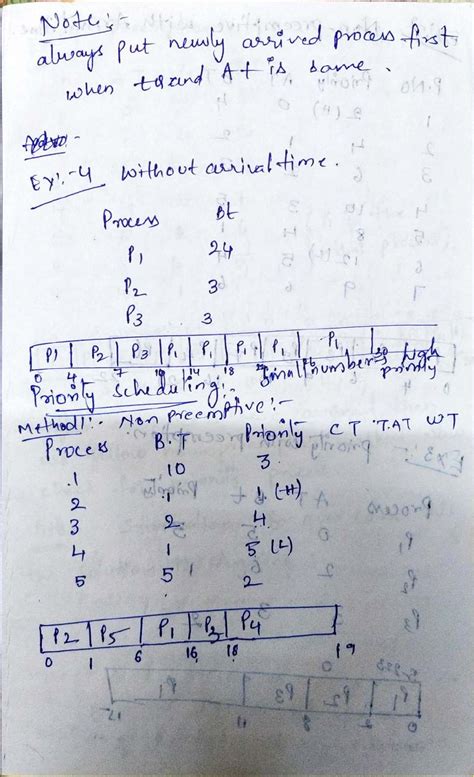 Note:-
always put newly arrived process first
when tq and At is same.
Ex:-4 without arrival time.
Process Bt
P1 24
P2 3
P3 3
P1 P2 P3 P1 P1 P1 P1 P1
0 4 7 10 14 18 22 26 30
Small number = high priority
Priority Scheduling:-
Method 1:- Non Preemptive:-
Process B.T Priority CT TAT WT
1 10 3
2 1 1 (H)
3 2 4
4 1 5 (L)
5 5 2
P2 P5 P1 P3 P4
0 1 6 16 18 19